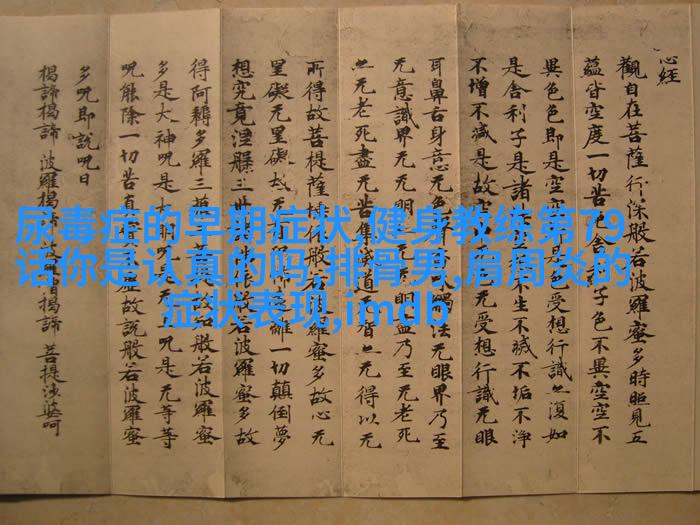 尿毒症的早期症状,健身教练第79
话你是认真的吗,排骨男,肩周炎的
症状表现,imdb
心经
觀自在菩薩行深般若波羅蜜多時照見五
蘊皆空度一切苦舍子色不異空空不
異色色即是空空是色受想行識亦復如
是舍利子是諸不生不滅不垢不淨
不增不減是故空色无受想行識无眼
耳鼻舌身意无色觸法无眼界乃至
无意識界无无明无明盡乃至无老死
亦无老死盡无苦集滅道无智亦无得以无
所得故菩提薩般若波羅蜜多故心无
罣礙无罣礙故无離一切顛倒夢
想究竟涅槃三世般若波羅蜜多故
得阿耨多羅三般若波羅蜜
多是大神呪是大明呪是无呪是无等等
呪能除一切苦真虛故說般若波羅蜜
多呪即說呪曰
揭諦揭諦 波羅揭 揭諦 菩提沙婆呵